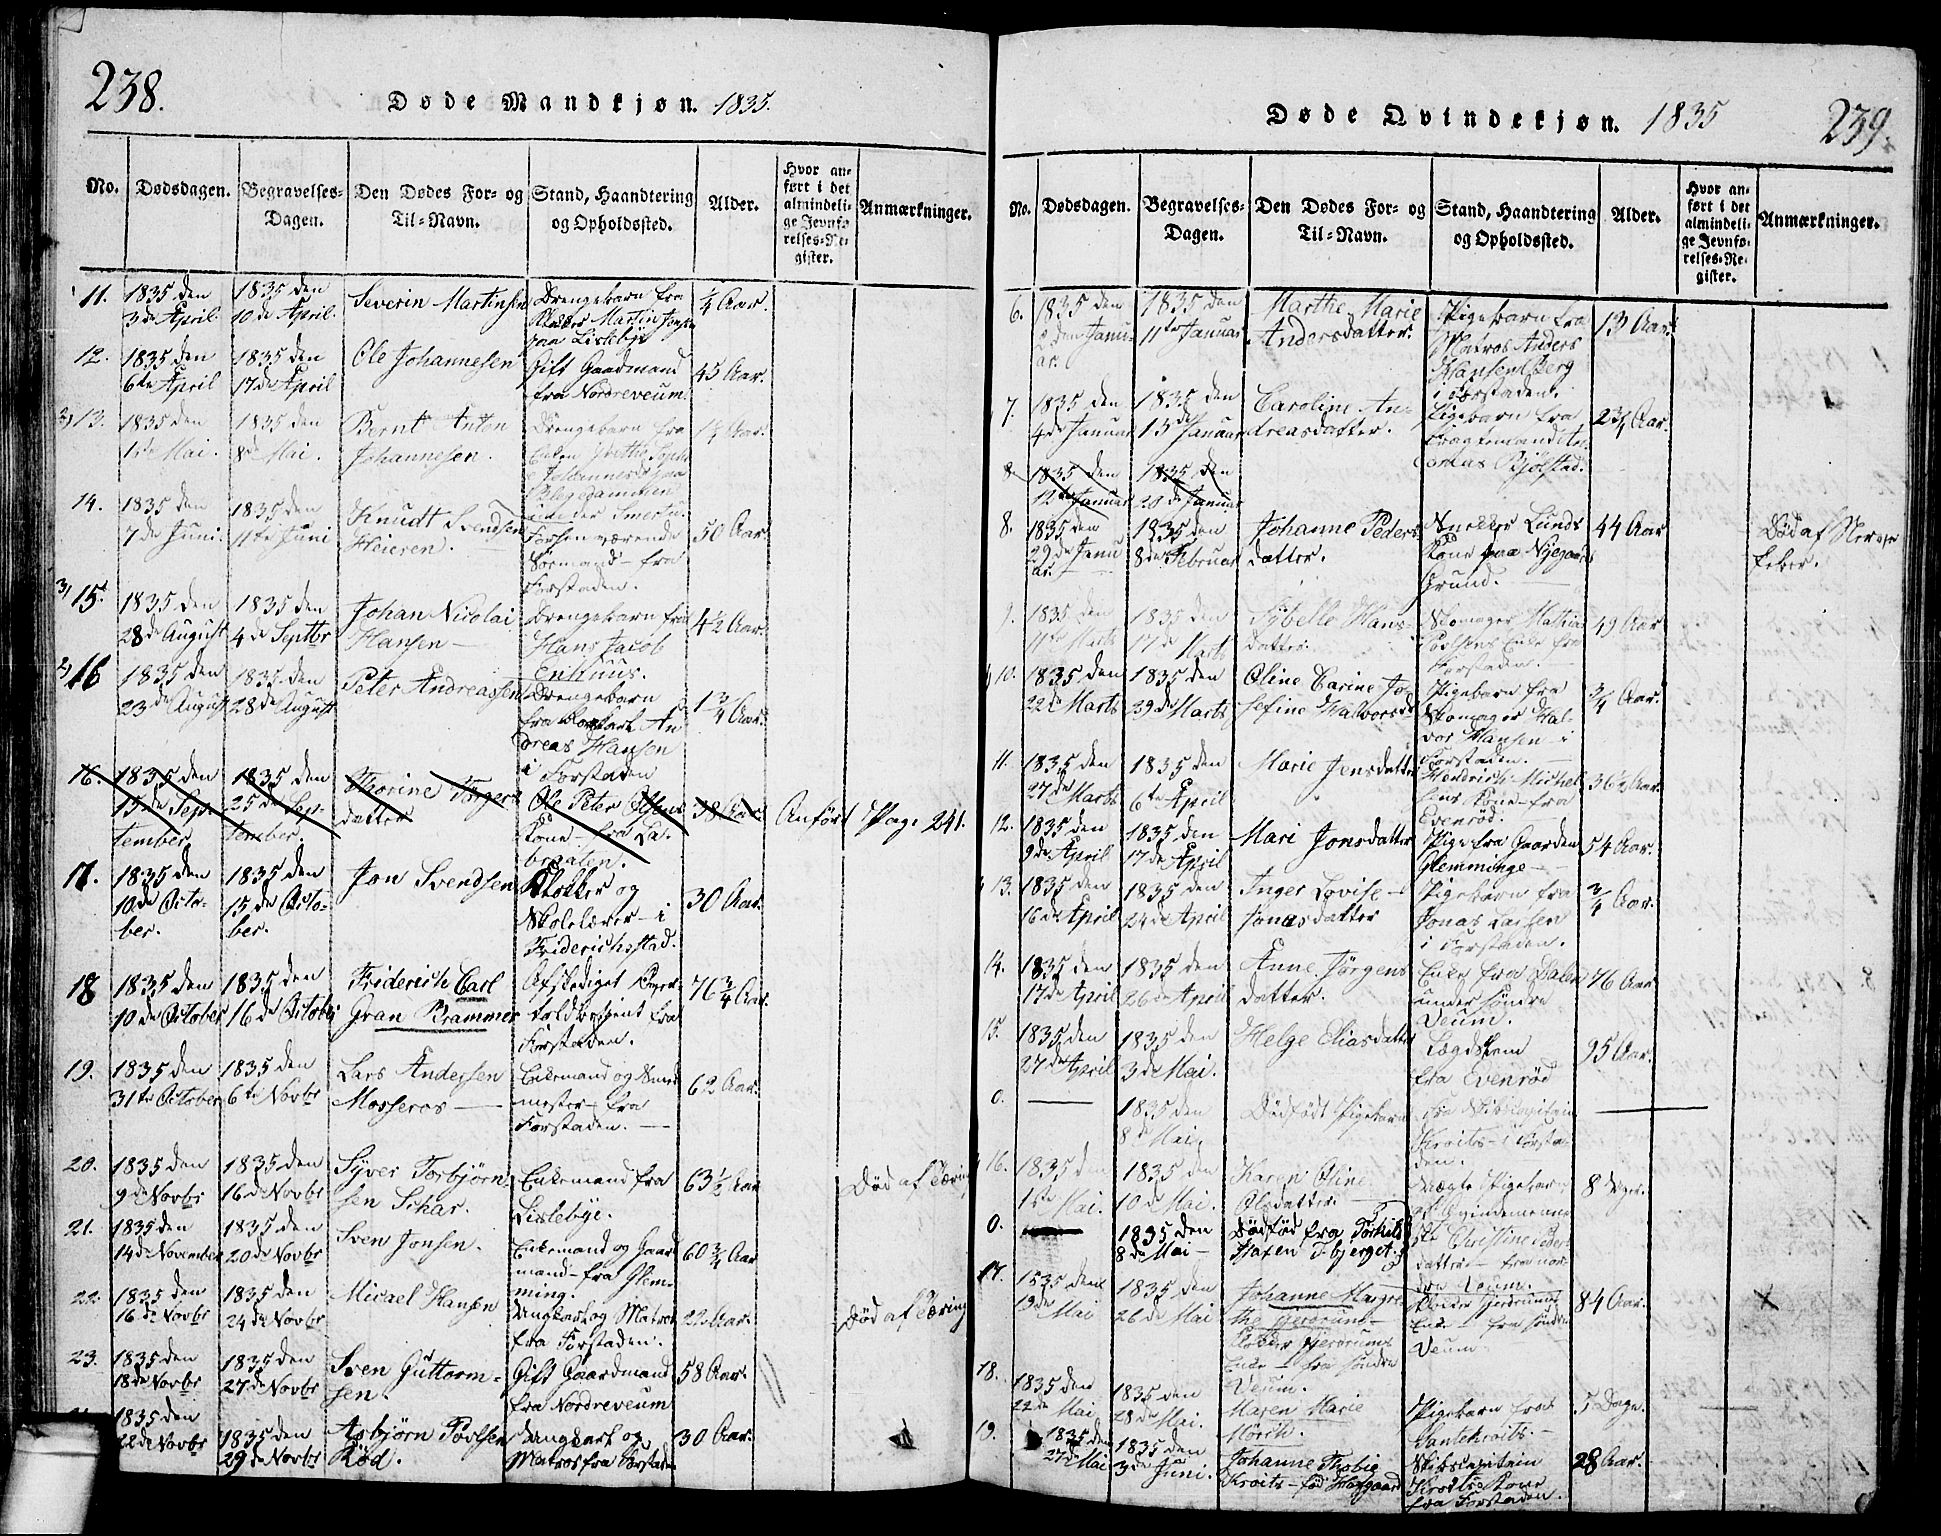 238.
Døde Mandkjøn. 1835.
No.
Dødsdagen.
Begravelses-
Dagen.
Den Dødes For- og
Til-Navn.
Stand, Haandtering
og Opholdssted.
Alder.
Hvor an-
ført i det
almindeli-
ge Jevnfø-
relses-Re-
gister.
Anmærkninger.
11.
1835 den
3de April.
1835 den
10de April.
Severin Martinsen
Drengebarn fra
Martin
paa Lisleby
1/4 Aar.
12.
1835 den
6te April
1835 den
17de April
Ole Johannesen
Gift Gaardmand
fra Nordreveum.
45 Aar.
2) 13.
1835 den
1ste Mai.
1835 den
8de Mai.
Bernt Anton
Johannesen.
Drengebarn fra
Enken Grethe
14.
1835 den
7de Juni.
1835 den
11te Juni
Knudt Svendsen
Heieren.
Forhenværende
Formand fra
Forstaden.
50 Aar
3) 15.
1835 den
28de August
1835 den
4de Septbr
Johan Nicolai
Hansen
Drengebarn fra
Hans Jacob
Enhuus.
4 1/2 Aar.
2) 16
1835 den
23de August
1835 den
28de August
Peter Andreassen
Drengebarn
fra An
dreas Hansen
i Forstaden
1 3/4 Aar.
16.
1835 den
15de Sep-
tember
1835 den
25de Sep-
tember.
Thorine Torgers
datter
Ole Peter Olsens
Kone fra La-
braaten.
38 Aar.
Anført Pag. 241.
17.
1835 den
10de Octo-
ber.
1835 den
15de Octo-
ber.
Jon Svendsen
Klokker og
Skolelærer i
Friderichstad.
30 Aar.
18
1835 den
10de October
1835 den
16de October
Friderich Carl
Gran Brammer
Afskediget Over-
toldbetjent fra
Forstaden.
76 3/4 Aar.
19.
1835 den
31te October
1835 den
6te Novbr
Lars Andersen
Mosseros
Enkemand og
mester fra
Forstaden.
62 Aar.
20.
1835 den
9de Novbr
1835 den
16de Novbr
Syver Torbjørn-
sen Schar.
Enkemand fra
Lislebye.
63 1/2 Aar
Død af Tæring
21.
1835 den
14de November
1835 den
20de Novbr
Sven Jonsen.
Enkemand og Gaard
mand fra Glem-
ming.
60 3/4 Aar
22.
1835 den
16de Novbr
1835 den
24de Novbr
Micael Hansen
Ungkarl og Matros
fra Forstaden.
22 Aar.
Død af Tæring
23.
1835 den
18de Novbr
1835 den
27de Novbr
Sven Guttorm-
sen.
Gift Gaardmand
fra Nordreveum
58 Aar.
1835 den
22de Novbr
1835 den
29de Novbr
Asbjørn Povlsen
Rød.
Ungkarl og
Matros fra Forstaden
30 Aar.
Døde Qvindekjøn. 1835
239.
No.
Dødsdagen.
Begravelses-
Dagen.
Den Dødes For- og
Til-Navn.
Stand, Haandtering
og Opholdssted.
Alder.
Hvor an-
ført i det
almindeli-
ge Jevnfø-
relses-Re-
gister.
Anmærkninger.
6.
1835 den
2den Janu-
ar.
1835 den
11te Januar
Marthe Marie
Andersdatter.
Pigebarn fra
Matros Anders
Hansen Berg
i Forstaden.
13 Aar.
7.
1835 den
4de Januar
1835 den
13de Januar
Caroline An-
dreasdatter.
Pigebarn fra
2 3/4 Aar.
8.
1835 den
12te Januar
1835 den
20de Januar
8.
1835 den
29de Janu
ar.
1835 den
8de Februar
Johanne Peders
datter.
Snekker Lunds
Kone paa Nygaards
Grund.
44 Aar
Død af Nerve
feber.
9.
1835 den
11te Marts
1835 den
17de Marts
Sybelle Hans-
datter.
Skomager
Enke fra
Forstaden.
49 Aar
10.
1835 den
22de Marts
1835 den
29de Marts
Oline Carine Jo-
sefine Halvorsd.
Pigebarn fra
Skomager Hal-
vor Hansen i
Forstaden.
3/4 Aar.
11.
1835 den
27de Marts
1835 den
6te April
Marie Jensdatter
Hendrich Michel
sens Kone fra
Evenrød.
36 1/2 Aar.
12.
1835 den
9de April
1835 den
17de April
Mari Jonsdatter
Pige fra Gaarden
Glemminge
54 Aar.
13.
1835 den
16de April
1835 den
24de April
Inger Lovise
Jonasdatter
Pigebarn fra
Jonas Larsen
i Forstaden.
3/4 Aar.
14.
1835 den
17de April
1835 den
26de April
Anne Jørgens
datter.
Enke fra Dalen
under søndre
Veum.
76 Aar
15.
1835 den
27de April
1835 den
3de Mai.
Helge Eliasdatter
Lægdslem
fra Evenrød
95 Aar.
0.
1835 den
8de Mai.
Dødfødt Pigebarn
fra Skibscapitain
Kroits i Forsta-
den.
16.
1835 den
1ste Mai.
1835 den
10de Mai.
Karen Oline
Olsdatter.
Uægte Pigebarn
af Qvindemenne
sket Christine Peders
datter fra nor-
dre Veum.
8 Dage.
0.
1835 den
8de Mai
Dødfød fra
17.
1835 den
19de Mai
1835 den
26de Mai
Johanne Margre-
the Gjerdrum
Klokker Gjerdrums
Enke fra søndre
Veum.
Klokker Gjerdrums
Enke fra søndre
Veum
84 Aar.
X
18.
1835 den
22de Mai
1835 den
28de Mai.
Maren Marie
Pigebarn fra
5 Dage.
19.
1835 den
27de Mai
1835 den
3de Juni.
Johanne Tobie
Kroits fød
Skibscapitain
Kroits Kone
fra Forstaden.
28 Aar.